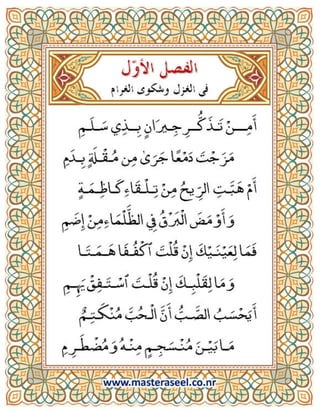 الفصل الأوّل
في الغزل وشكوى الغرام
أَمِــنْ تَذَكُّــرِ جِيرَانٍ بِــذِي سَــلَــمِ
مَزَجْتَ دَمْعًا جَرَىٰ مِن مُقْــلَةٍ بِــدَمِ
أَمْ هَبَّتِ الرِّيحُ مِنْ تِلْــقَاءِ كَاظِــمَــةٍ
وَأَوْمَضَ الْبَرْقُ فِي الظَّلْمَاءِ مِنْ إِضَمِ
فَمَا لِعَيْنَيْكَ إِنْ قُلْتَ ٱكْفُفَا هَــمَــتَــا
وَمَا لِقَلْبِــكَ إِنْ قُلْتَ ٱسْتَــفِقْ يَــهِــمِ
أَيَحْسَبُ الصَّبُّ أَنَّ الْحُبَّ مُنْكَــتِــمٌ
مَــا بَيْــنَ مُنْسَجِــمٍ مِنْــهُ وَمُضْطَــرِمِ
www.masteraseel.co.nr